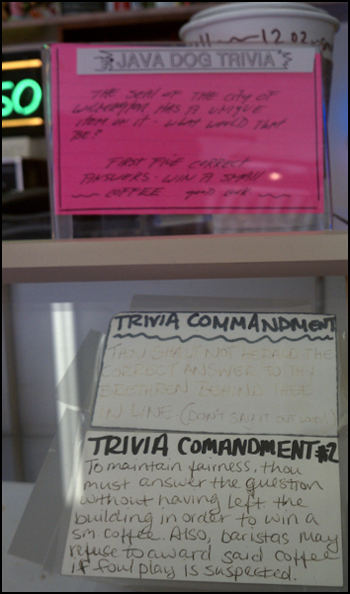 12 oz.
SO
JAVA DOG TRIVIA
THE SEAL OF THE CITY OF
WILMINGTON HAS A UNIQUE
ITEM ON IT - WHAT WOULD THAT
BE?
FIRST FIVE CORRECT
ANSWERS - WIN A SMALL
COFFEE good luck
TRIVIA COMMANDMENT
THOU SHALT NOT HERALD THE
CORRECT ANSWER TO THY
BRETHREN BEHIND THEE
IN LINE (DON'T SAY IT OUT LOUD!)
TRIVIA COMANDMENT #2
To maintain fairness, thou
must answer the question
without having left the
building in order to win a
sm coffee. Also, baristas may
refuse to award said coffee
if foul play is suspected.